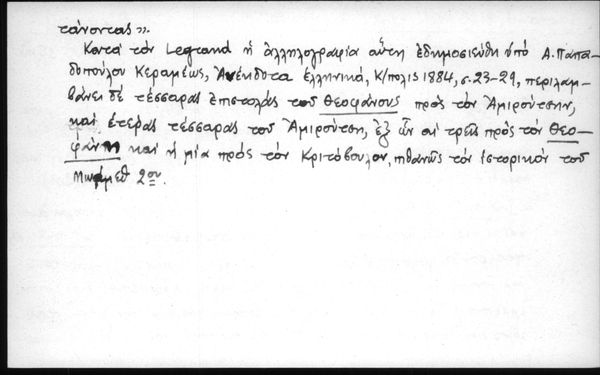 τάνοντας ».
Κατά τόν Legrand ἡ ἀλληλογραφία αὕτη ἐδημοσιεύθη ὑπό Α. Παπα-
δοπούλου Κεραμέως, Ἀνέκδοτα ἑλληνικά, Κ/πολις 1884, σ. 23-29, περιλαμ-
βάνει δέ τέσσαρας ἐπιστολάς τοῦ Θεοφάνους πρός τόν Ἀμιρούτσην,
καί ἑτέρας τέσσαρας τοῦ Ἀμιρούτση, ἐξ ὧν αἱ τρεῖς πρός τόν Θεο-
φάνη καί ἡ μία πρός τόν Κριτόβουλον, πιθανῶς τόν ἱστορικόν τοῦ
Μωάμεθ 2ου.